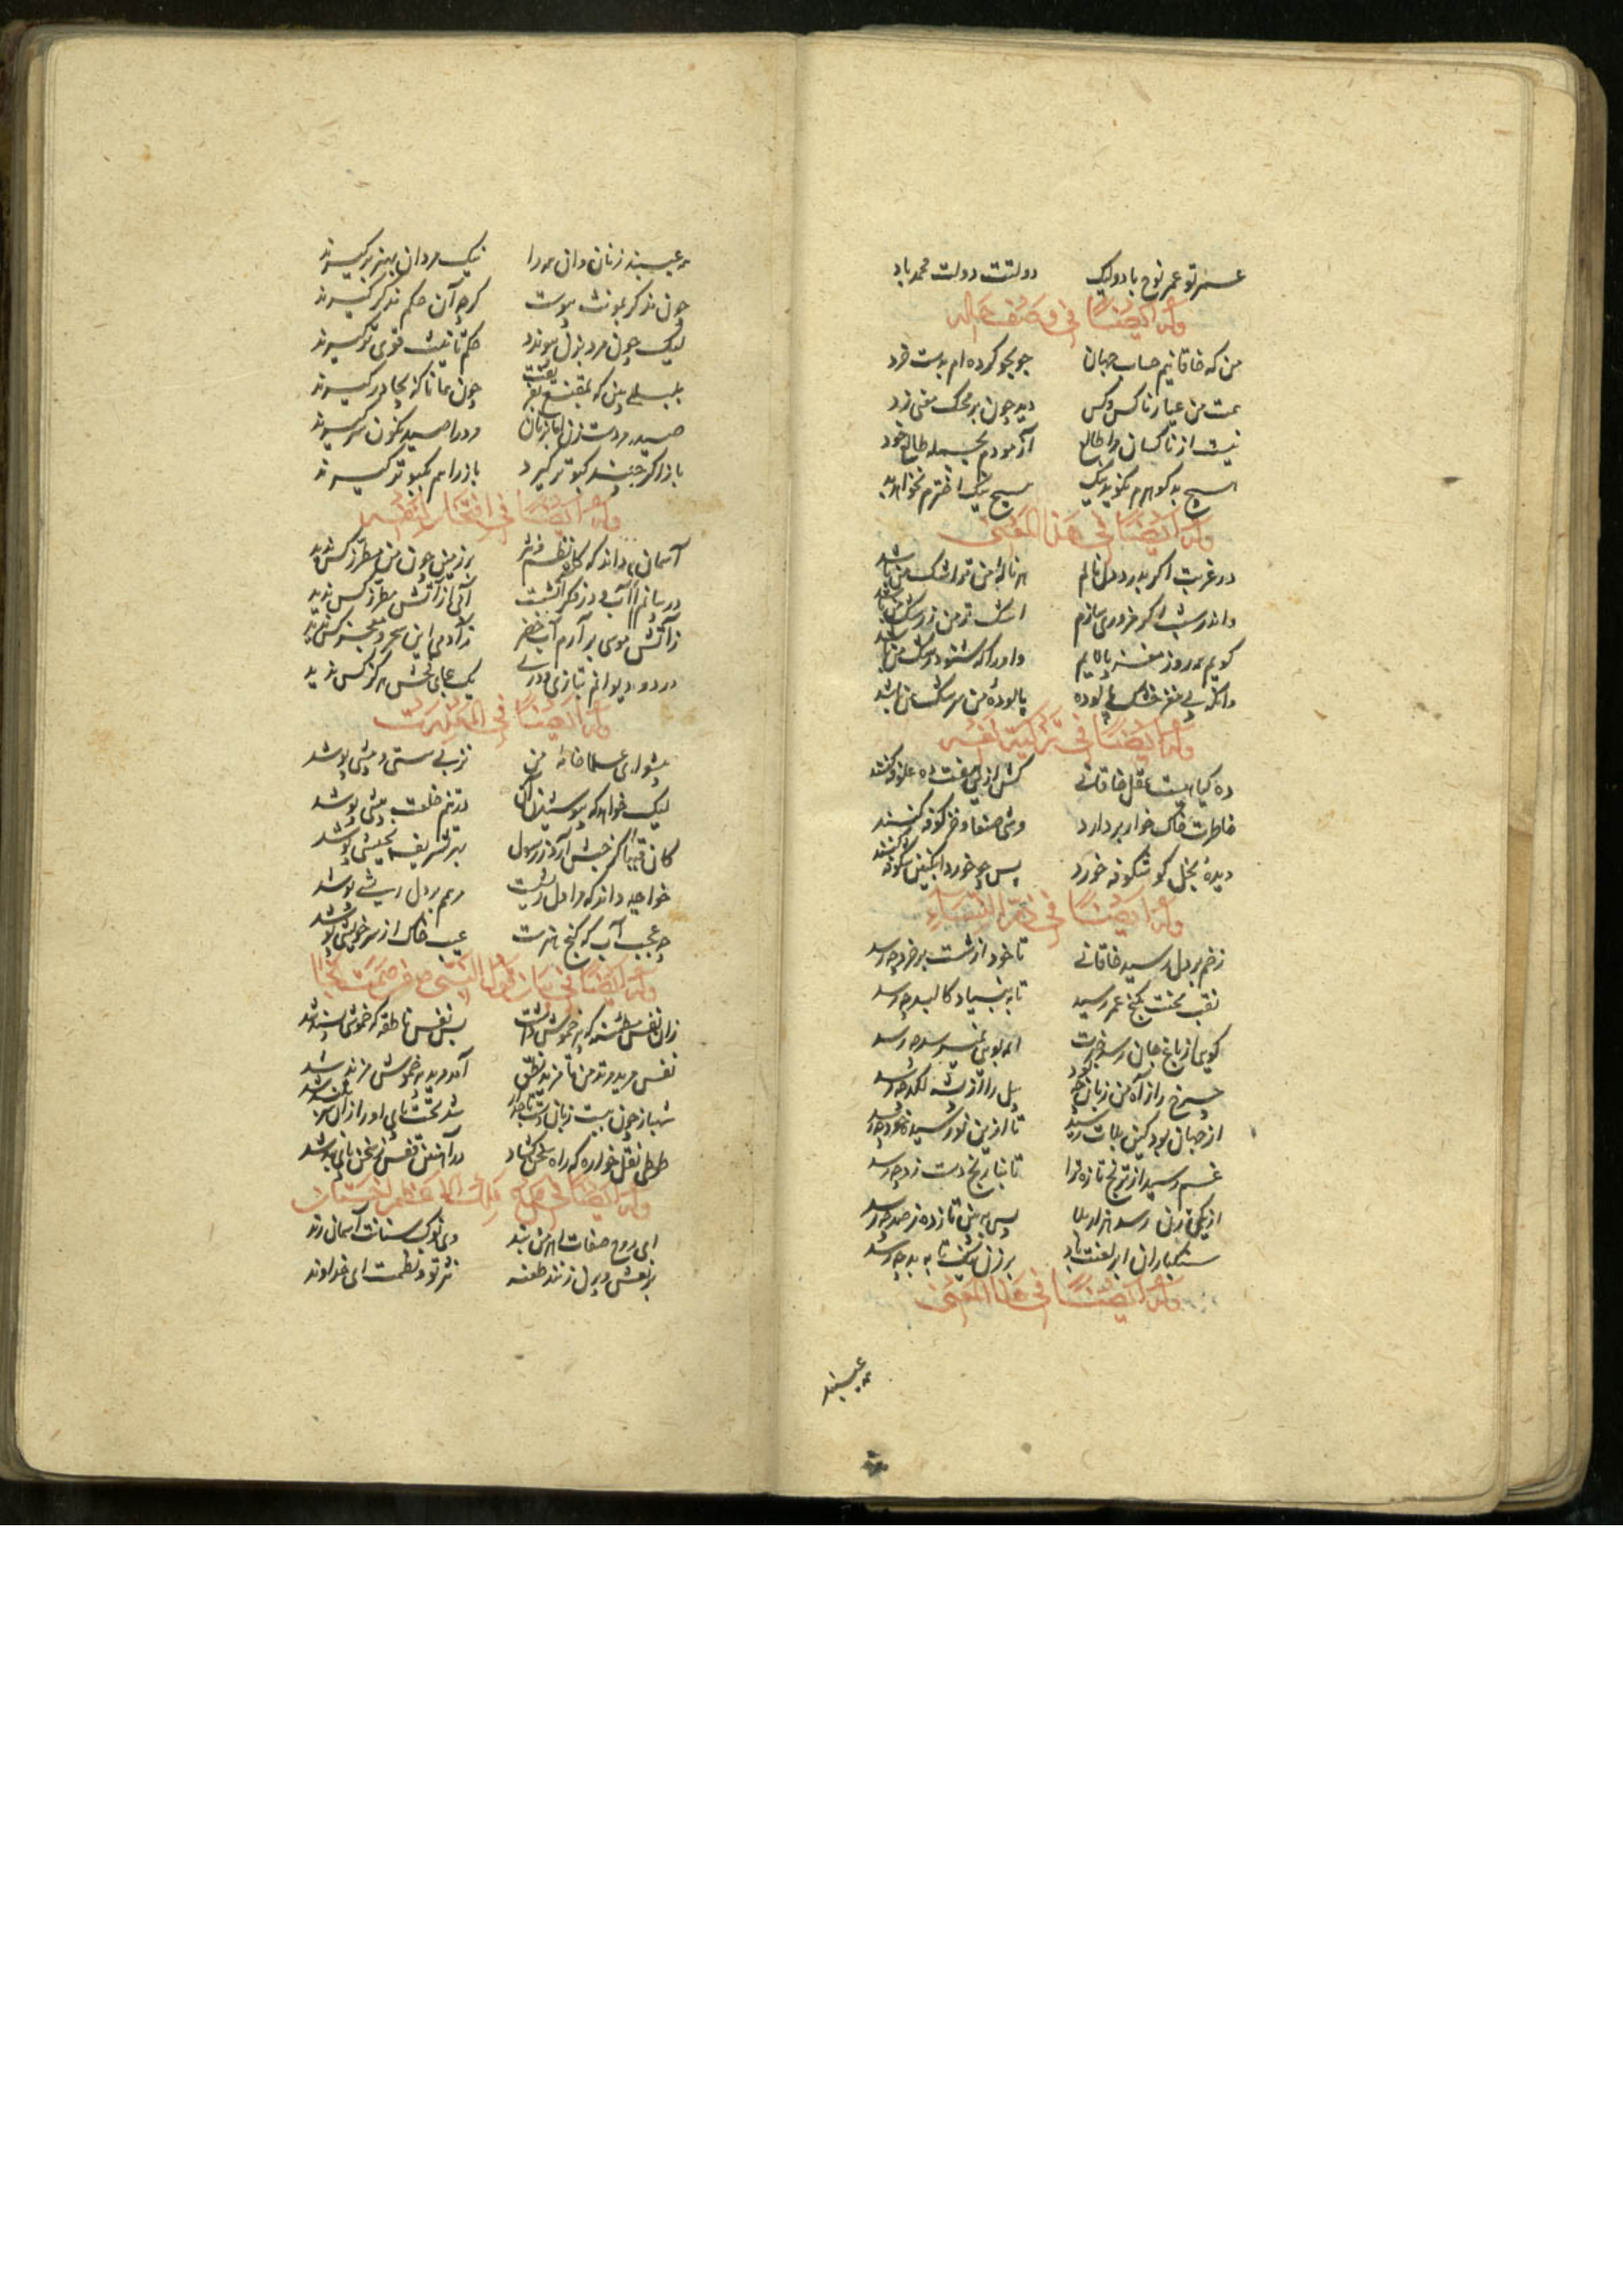 عمر تو عمر نوح باد ولیک دولتت دولت محمد باد
وله ایضا فی وصف حاله
من که خاقانیم حساب جهان جو بجو کرده ام بدست خرد
همت من عیار ناکس و کس دید چون بر محک معنی زد
نیست از ناکسان مرا طالع آزمودم بجمله طالع خود
هیچ بد گوهرم نگوید نیک هیچ نیک اخترم نخواهد بد
وله ایضا فی هذا المعنی
در غربت اگر بدرد دل نالم هر ناله من تو را شک من باشد
واندر شب اگر مزوری سازم اشک تر من زرشک من باشد
گویم همه روز مغز پالایم داور اکه شنود
وانکه بی مغز خشک پالوده پالوده من سرشک من باشد
وله ایضا فی تزکیة نفسه
ده کیا هست عقل خاقانی کش ازین هفت ده علوفه کنند
خاطرت خاک خوار بر دارد وشی صنعا و خز کوفه کنند
دیده نحل کو شکوفه خورد پس چو خورد انگبین شکوفه کنند
وله ایضا فی ذم النساء
زخم بر دل رسید خاقانی تا خود از شست بر خرد چه رسد
نقب محنت بگنج عمر رسید تا به بنیاد کالبد چه رسد
گویی از باغ جان رسد خبرت
چرخ را ز آه من زیان چه بود پیل را از پشه لگد چه رسد
از جهان بود کین بلات رسید تا ازین نو رسیده خود چه رسد
غم رسید از ترنج تازه ترا تا بنارنج دست زد چه رسد
از یکی زن رسد هزار بلا پس به بین تا ز ده ز صد چه رسد
سنگباران ابر لعنت باد بر زن نیک تا به بد چه رسد
وله ایضا فی هذا المعنی
همه عیبند
همه عیبند زنان وان همه را نیک مردان بهنر برگیرند
چون مذکر بمونث پیوست گرچه آن حکم مذکر گیرند
لیک چون مرد بزن پیوندد حکم تانیث قوی تر گیرند
بلبلی بین که بمقنع بفریفت چون همانا که بچادر گیرند
صید مردست زن اما بزبان مرد را صید نگون سر گیرند
باز اگر چند کبوتر گیرد باز را هم بکبوتر گیرند
وله ایضا فی افتخار لنفسه
آسمان داند که گاه نظم و نثر بر زمین چون من مبرز کس ندید
در بیانم آب و در فکر آتشست آبی از آتش مطرز کس ندید
زآتش موسی بر آرم آب خضر زآدمی این سحر و معجز کس ندید
در دو دیوانم بتازی و دری یک هجای فحش هرگز کس ندید
وله ایضا فی المعذرت
پیشوای علما خانه من نز پی سستی و پیشی پوشد
لیک خواهد که بپوشیدن آن در تنم خلعت بیشی پوشد
کان قباکز حبش آرند رسول بهر تشریف نجیشی پوشد
خواجه داند که مرا دل ریشت مرهم بر دل ریشی پوشد
چه عجب آب که گنج هنرست عیب خاک از سر خویشی پوشد
وله ایضا فی بیان قول النبی ص من صمت نجا
زان نفس مطمئنه که پر خموش داشت بس نفس ناطقه که خموشی پسند شد
نفس مرید مرد من تا مزید نطق آمد مرید و خموشی مزید شد
شهباز چون ببست زبان دست تاجدار شد تخت پای او را زان سربلند شد
طوطی نقل خواره که راه سخن گشاد در آهنین قفس ز سخن پای بند شد
وله ایضا فی مدح ملک الاعظم اخستان
ای روح صفات اهرمن بند وی نوک سنانت آسمان رند
بر نعش و پرن زنند طعنه نثر تو و نظمت ای خداوند